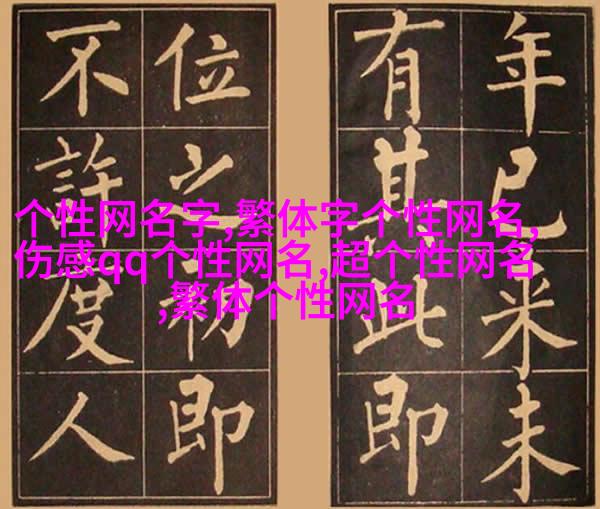 年已米未
有其此即
位之初即
不許度人
个性网名字,繁体字个性网名,
伤感qq个性网名,超个性网名
,繁体个性网名